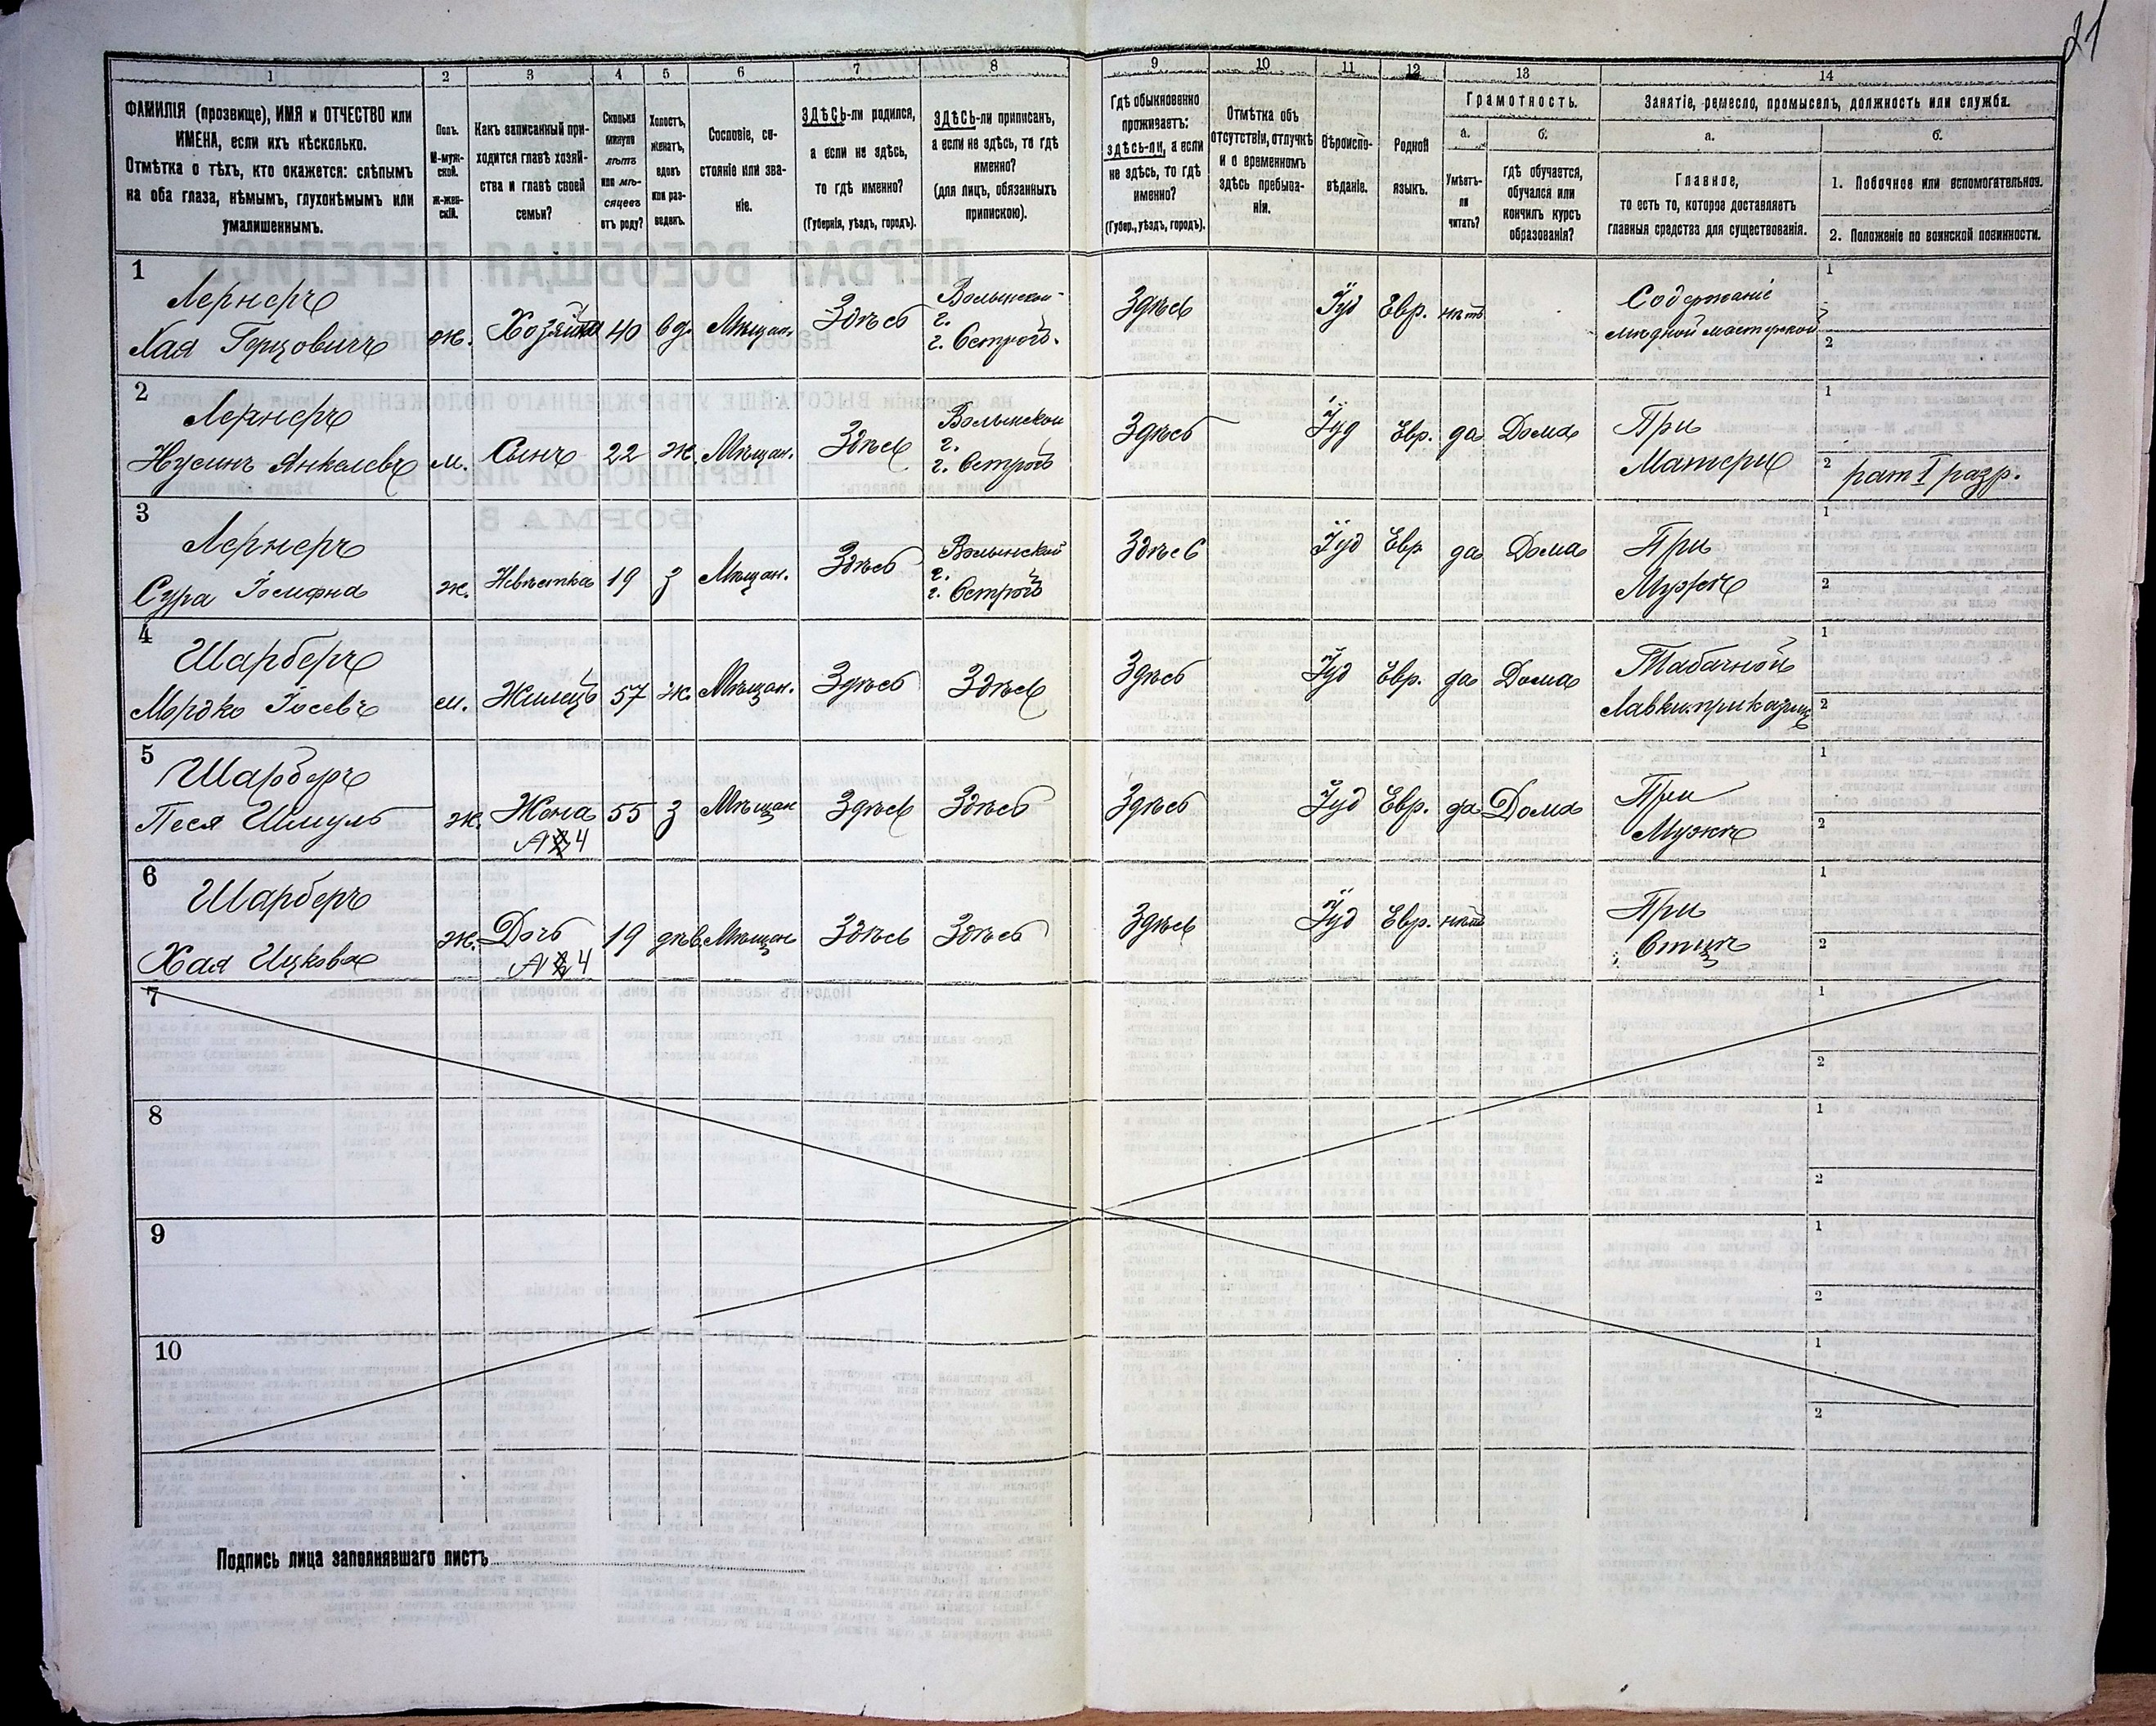 21
1
2
3
4
5
6
7
8
9
10
11
12
13
14
ФАМИЛІЯ (прозвище), ИМЯ и ОТЧЕСТВО или
ИМЕНА, если ихъ нѣсколько.
Отмѣтка о тѣхъ, кто окажется: слѣпымъ
на оба глаза, нѣмымъ, глухонѣмымъ или
умалишеннымъ.
Полъ.
М-муж-
ской.
Ж-жен-
скій.
Какъ записанный при-
ходится главѣ хозяй-
ства и главѣ своей
семьи?
Сколько
минуло
лѣтъ
или мѣ-
сяцевъ
отъ роду?
Холостъ,
женатъ,
вдовъ
или раз-
веденъ.
Сословіе, со-
стояніе или зва-
ніе.
ЗДѢСЬ-ли родился,
а если не здѣсь,
то гдѣ именно?
(Губернія, уѣздъ, городъ).
ЗДѢСЬ-ли приписанъ,
а если не здѣсь, то гдѣ
именно?
(для лицъ, обязанныхъ
припискою).
Гдѣ обыкновенно
проживаетъ:
здѣсь-ли, а если
не здѣсь, то гдѣ
именно?
(Губер., уѣздъ, городъ).
Отмѣтка объ
отсутствіи, отлучкѣ
и о временномъ
здѣсь пребыва-
ніи.
Вѣроиспо-
вѣданіе.
Родной
языкъ.
Грамотность.
а.
Умѣетъ-
ли
читать?
б.
гдѣ обучается,
обучался или
кончилъ курсъ
образованія?
Занятіе, ремесло, промыселъ, должность или служба.
а.
Главное,
то есть то, которое доставляетъ
главныя средства для существованія.
б.
1. Побочное или вспомогательное.
2. Положеніе по воинской повинности.
1
Лернеръ
Хая Герцовичъ
ж.
Хозяйка
40
вд.
Мѣщан.
Здѣсь
Волынской
г.
г. Острогъ.
Здѣсь
Іуд
Евр.
нѣтъ
Содержаніе
мѣдной мастерской
1
2
2
Лернеръ
Нусинъ Анкелевъ
м.
Сынъ
22
ж.
Мѣщан.
Здѣсь
Волынской
г.
г. Острогъ
Здѣсь
Іуд
Евр.
да
Дома
При
Матери
1
2
рат I разр.
3
Лернеръ
Сура Іосифна
ж.
Невѣстка
19
з
Мѣщан.
Здѣсь
Волынской
г.
г. Острогъ
Здѣсь
Іуд
Евр
да
Дома
При
Мужѣ
1
2
4
Шарберъ
Мордко Іосевъ
м.
Жилецъ
57
ж.
Мѣщан.
Здѣсь
Здѣсь
Здѣсь
Іуд
Евр.
да
Дома
Табачной
Лавки приказщ
1
2
5
Шарберъ
Песя Шмуль
ж.
Жена
4
55
з
Мѣщан
Здѣсь
Здѣсь
Здѣсь
Іуд
Евр.
да
Дома
При
Мужѣ
1
2
6
Шарберъ
Хая Ицкова
ж.
Дочь
4
19
дѣв.
Мѣщан
Здѣсь
Здѣсь
Здѣсь
Іуд
Евр.
нѣтъ
При
Отцѣ
1
2
7
1
2
8
1
2
9
1
2
10
1
2
Подпись лица заполнявшаго листъ